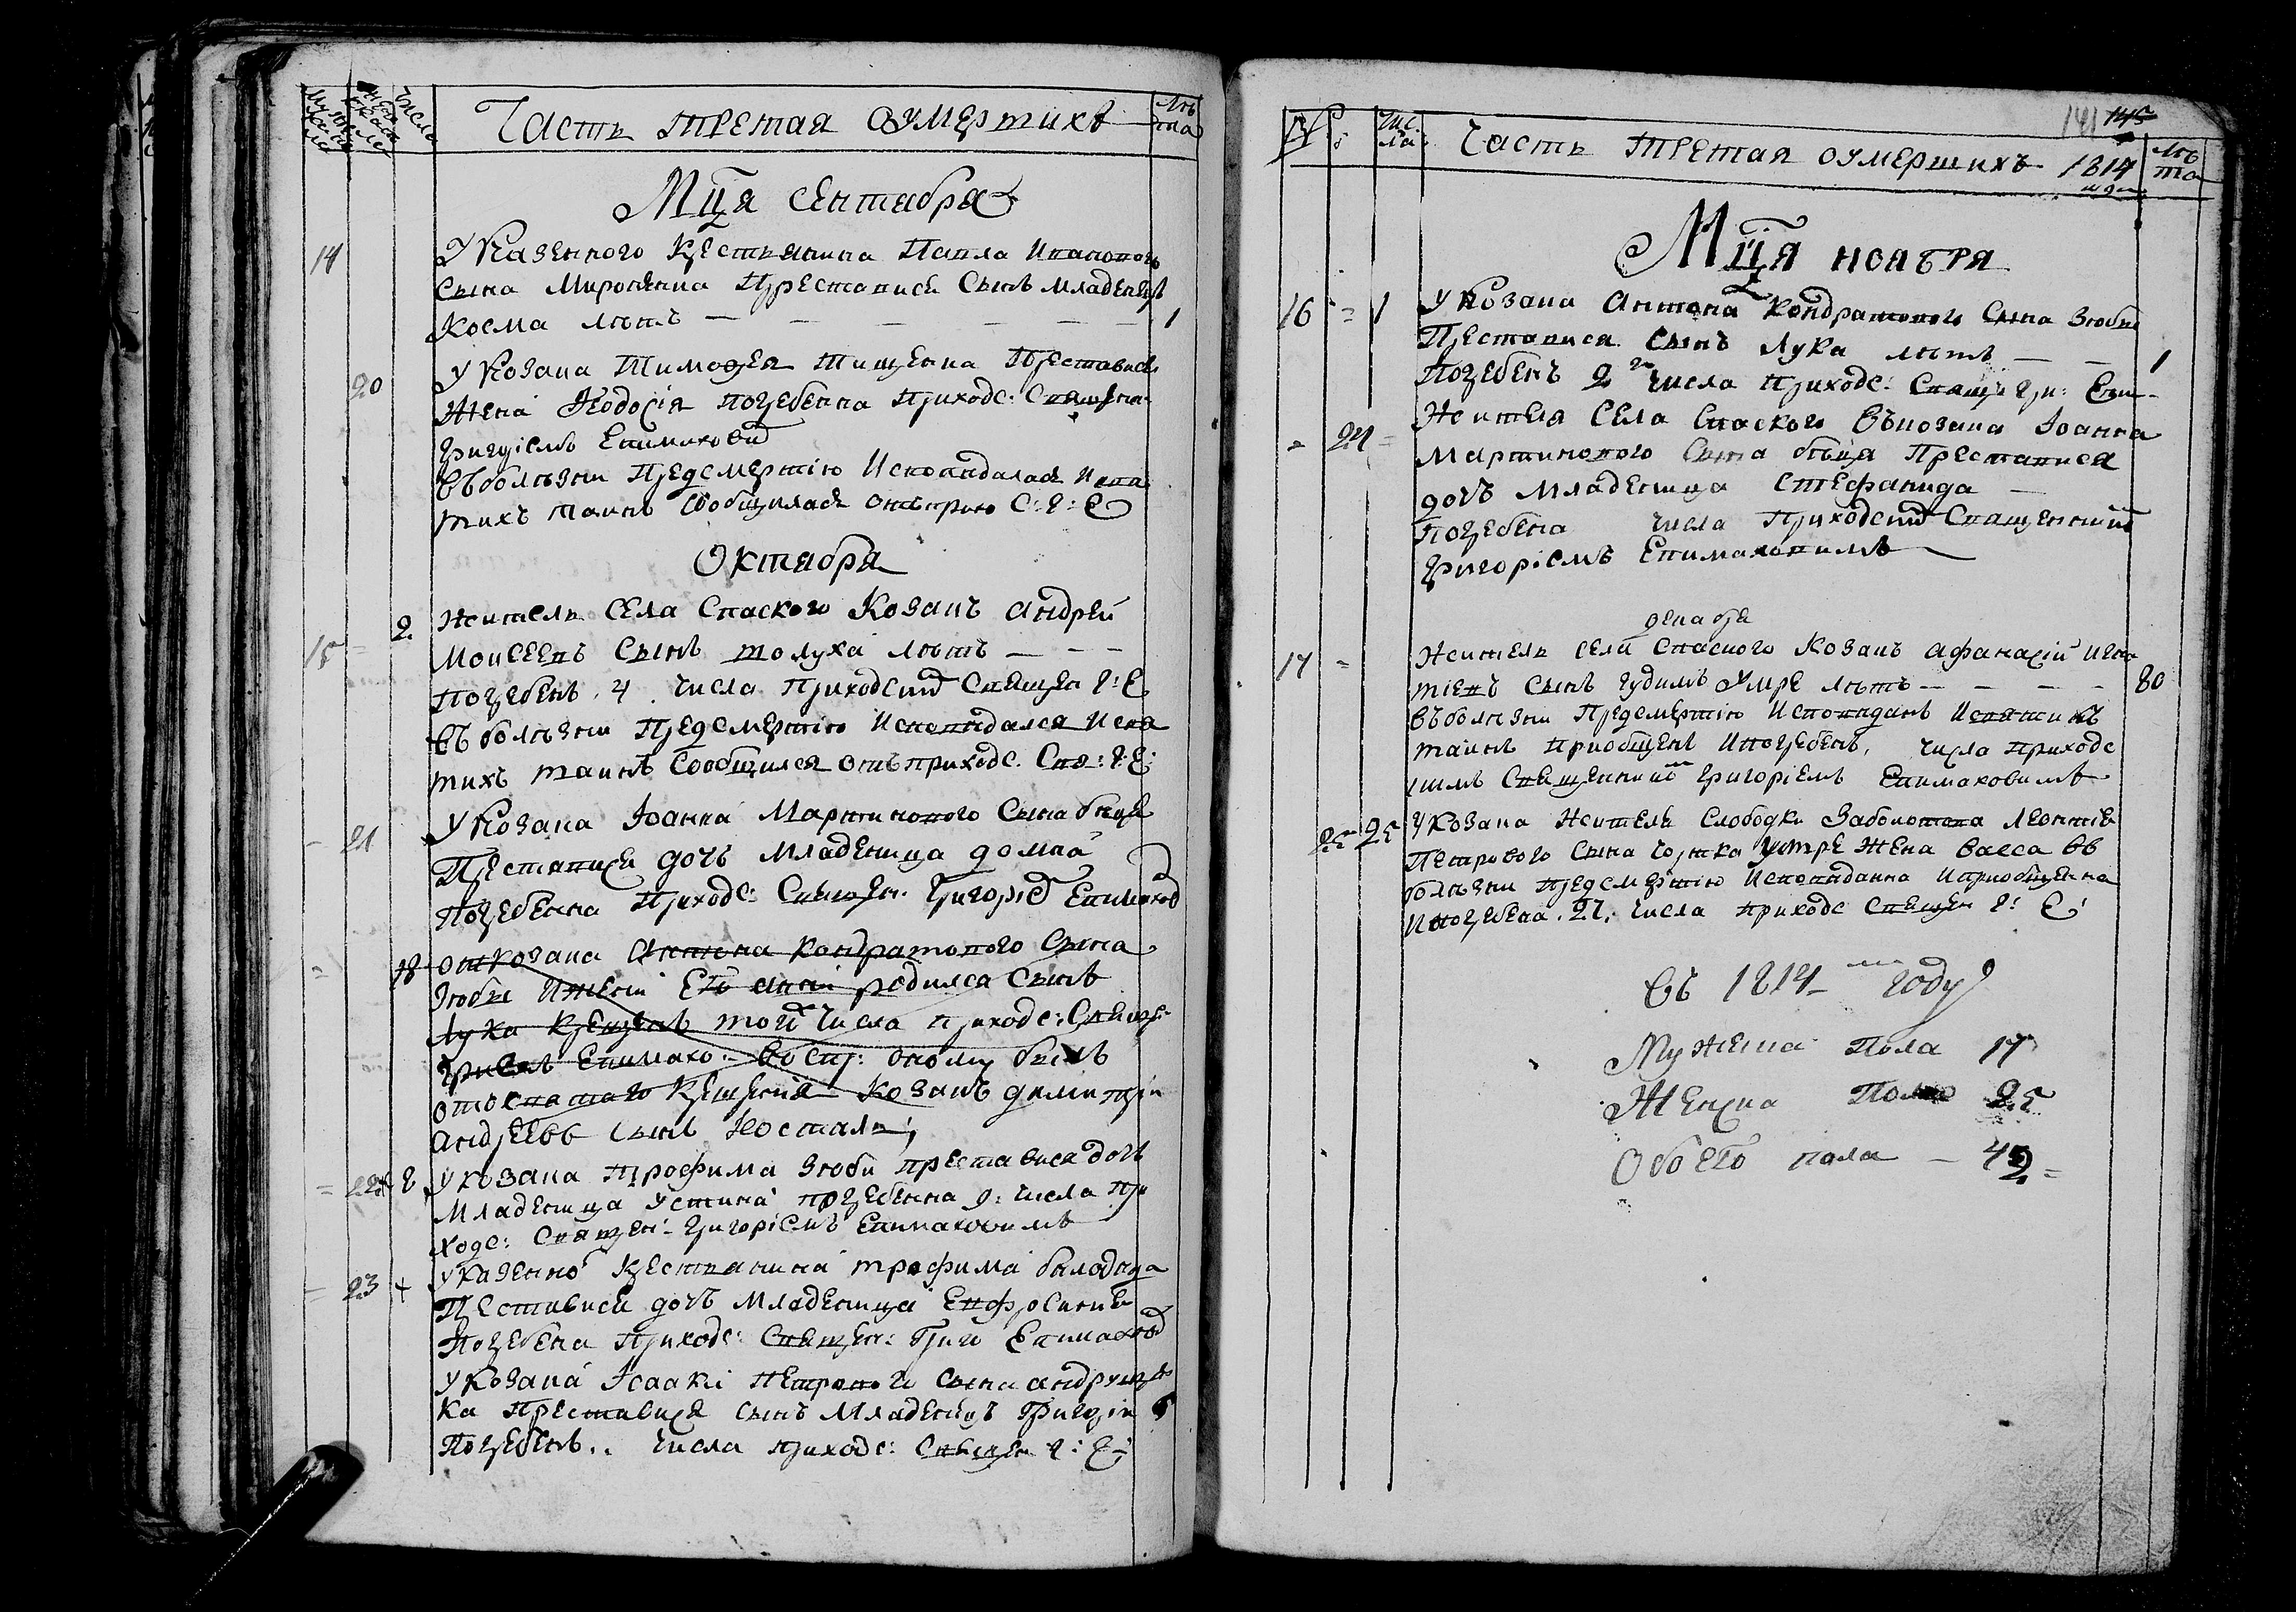 Часть третая оумертихъ
Лѣта
Число
Мцⷭя Сентабра
14 У Казенного Крестьянина Павла Ивановогѡ
Сына Миронѣнка Преставися Сынъ младенецъ
Косма лѣтъ — — — — — 1
20 У Козака Тимофея Тищенка Преставися
Жена Феодосіа погребенна Приходс: Священ
Григоріемъ Епимаховим
Въ болѣзни Предсмертію Исповидалася И свя
тихъ Таинъ Сообщилася Онъ прию С: Г: Е
Октабра
15 = 2. Житель Села Спаского Козакъ Андрей
Моисеевъ Сынъ Толуха лѣтъ — — —
Погребенъ. 4. числа Приходским Священ Г: Е
Въ болѣзни Предсмертію Исповидался И свя
тихъ таинъ Сообщился отъ приходс. Свя: Г: Е:
– 21 У Козака Іоанна Мартиновогo Сына
Преставися дочъ Младеница домна
Погребенна Приходс: Священ. Григоріе Епимахов
18 От Козака Антона Кондратовогo Сына
Зюбы И жени Его анни родился Сынъ
Лука Крещенъ того числа Приходс: Священ
Епимахо: Воспр: оному былъ
от святаго Крещенія Козакъ димитрій
андреевъ Сынъ Косталь;
= 22 8 У Козака Трофима Зюби преставися дочъ
Младеница Устина погребенна 9: числа При
ходс: Священ: Григоріемъ Епимаховимъ
= 23 У Казенно Крестьянина трофима
Преставися дочъ Младеница Евфросиніа
Погребена Приходс: Священ: Григо Епимахов
У Козака Исаакі Петровогo Сына андрущен
ка Преставися Сынъ Младенецъ Григорій
Погребенъ.. числа приходс: Священ Г: Е:
141 145
Чис
ла
Часть третая оумершихъ 1814
Лѣ
та
Мцⷭя ноября
16 = 1 У Козака Антона Кондратовогo Сына Зюбы
Преставися Сынъ Лука лѣтъ — — 1
Погребенъ 2 го числа Приходс: Свящ: Гри: Епи-
= 24 = Жителя Села Спаского Въ козака Іоанна
Мартиновогo Сына Преставися
дочъ Младеница Стефанида —
Погребена числа Приходским Священником
Григоріемъ Епимаховимъ
декабря
17 = Житель села Спаского Козакъ Афанасій Игна
тіевъ Сынъ Гудимъ Умре лѣтъ — — — — 80
Въ болѣзни Предсмертію Исповиданъ И святихъ
таинъ Приобщенъ И погребенъ, числа Приходс
кимъ Священником Григоріемъ Епимаховимъ
25 25 У Козака Житель Слободки Заболотока Леонтіе
Петрового Сына Умре жена Васса въ
болѣзни предсмертію Исповиданна И приобщенна
И погребена. 27. числа приходс Священ Г: Е:
Въ 1814 м году
Мужеска Пола 17
Женска Пола 25
Обоего пола — 42 =